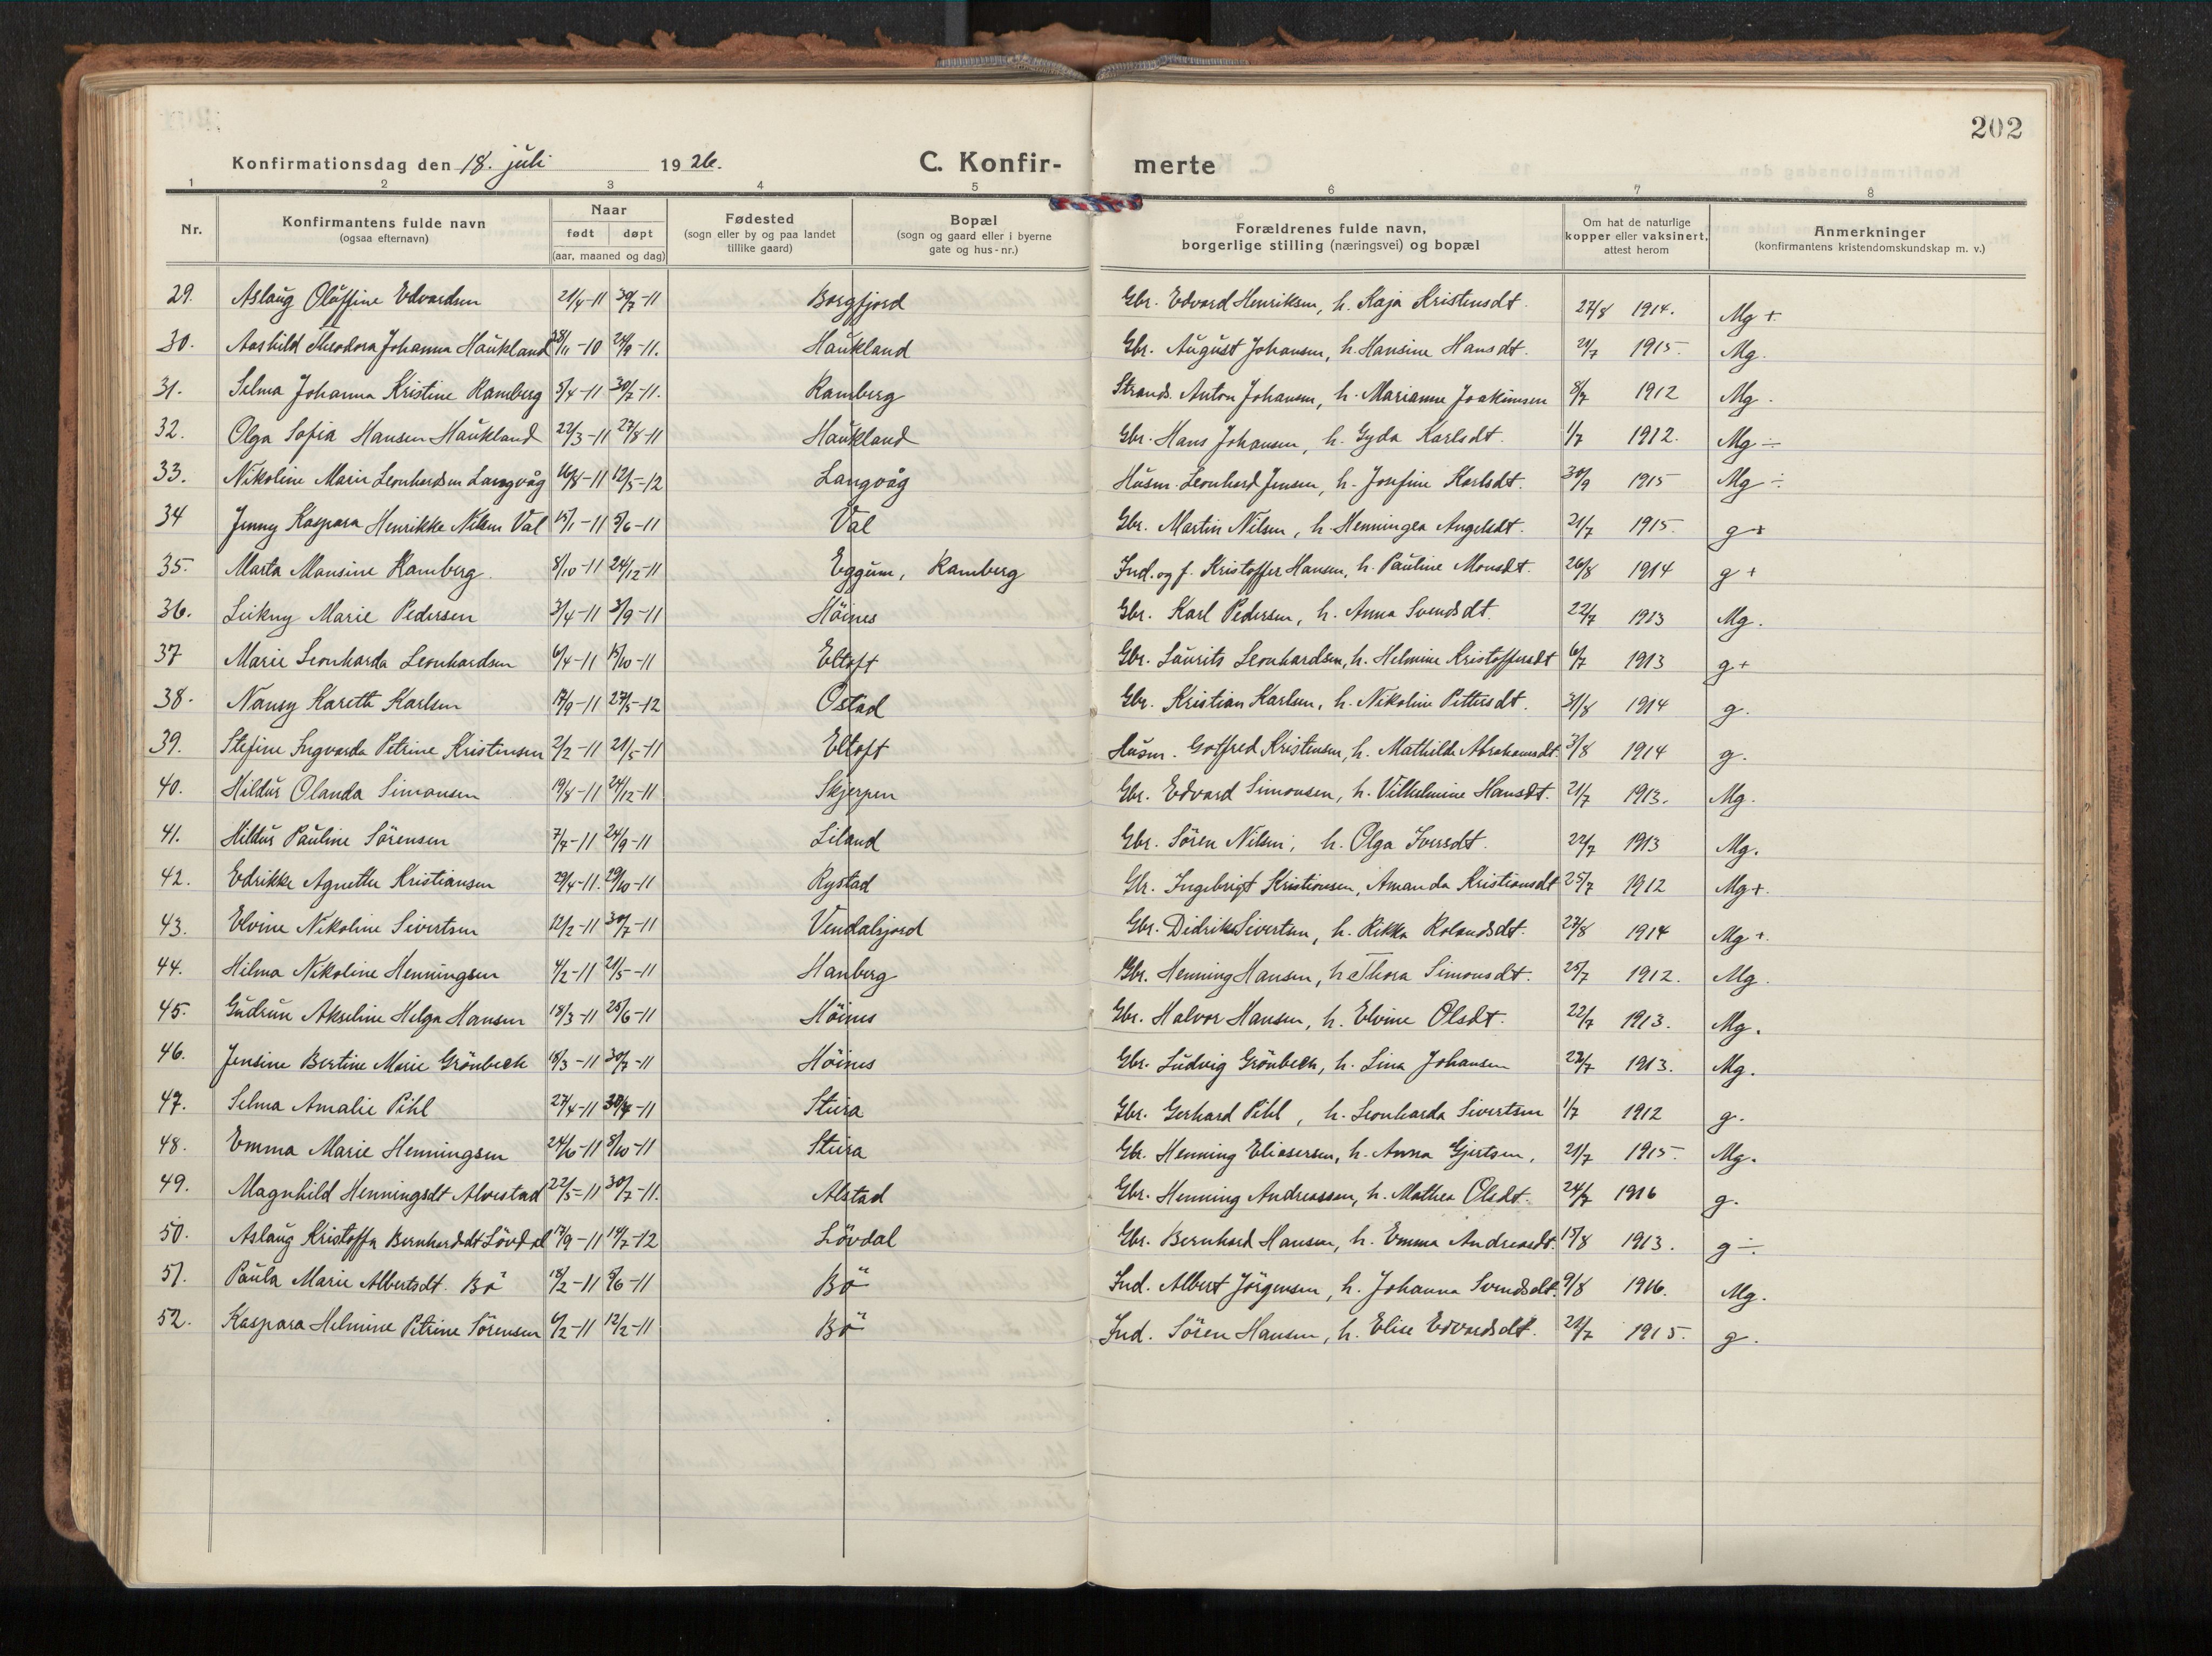 202
Konfirmationsdag den 18. juli 1926. C. Konfir- merte
1 2 3 4 5 6 7 8
Nr. Konfirmantens fulde navn (ogsaa efternavn) Naar født døpt (aar, maaned og dag) Fødested (sogn eller by og paa landet tillike gaard) Bopæl (sogn og gaard eller i byerne gate og hus-nr.) Forældrenes fulde navn, borgerlige stilling (næringsvei) og bopæl Om hat de naturlige kopper eller vaksinert, attest herom Anmerkninger (konfirmantens kristendomskundskap m. v.)
29. Aslaug Oluffine Edvardsen 21/4-11 30/7-11 Borgfjord Gbr. Edvard Henriksen, h. Kaja Kristensdt. 27/8 1914. Mg +
30. Aashild Theodora Johanna Haukland 28/11-10 24/9-11. Haukland Gbr. August Johansen, h. Hansine Hansdt. 21/7 1915. Mg.
31. Selma Johanna Kristine Ramberg 5/4-11 30/7-11. Ramberg Strands. Anton Johansen, h. Marianne Joakimsen 8/7 1912 Mg.
32. Olga Sofia Hansen Haukland 22/3-11 27/8-11 Haukland Gbr. Hans Johansen, h. Gyda Karlsdt. 1/7 1912. Mg ÷
33. Nikoline Marie Leonhardsen Langvåg 16/8-11 12/5-12 Langvåg Husm. Leonhard Jensen, h. Josefine Karlsdt. 30/9 1915 Mg ÷
34 Jenny Kaspara Henrikke Nilsen Val 15/1-11 5/6-11 Val Gbr. Martin Nilsen, h. Henningea Angelsdt. 21/7 1915. g +
35. Marta Mansine Ramberg. 8/10-11 24/12-11 Eggum, Ramberg Ind. og f. Kristoffer Hansen, h. Pauline Monsdt. 26/8 1914 g +
36. Leikny Marie Pedersen 3/4-11 3/9-11 Höines Gbr. Karl Pedersen, h. Anna Svendsdt. 22/7 1913 Mg.
37 Marie Leonharda Leonhardsen 6/4-11 15/10-11 Eltoft Gbr. Laurits Leonhardsen, h. Helmine Kristoffersdt 6/7 1913 g +
38. Nansy Kareth Karlsen 17/9-11 27/5-12 Ostad Gbr. Kristian Karlsen, h. Nikoline Pettersdt. 31/8 1914 g.
39. Stefine Ingvarda Petrine Kristensen 2/2-11 21/5-11 Eltoft Husm. Gotfred Kristensen, h. Mathilde Abrahamsdt. 31/8 1914 g.
40. Hildur Olanda Simonsen 19/8-11 24/12-11 Skjerpen Gbr. Edvard Simonsen, h. Vilhelmine Hansdt. 21/7 1913. Mg.
41. Hildur Pauline Sörensen 7/7-11 24/9-11 Liland Gbr. Sören Nilsen, h. Olga Iversdt. 22/7 1913 Mg.
42. Edrikke Agnethe Kristiansen 29/4-11. 29/10-11 Rystad Gbr. Ingebrigt Kristiansen, Amanda Kristiansdt 25/7 1912 Mg +.
43. Elvine Nikoline Sivertsen 12/2-11 30/7-11 Vendalsjord Gbr. Didrik Sivertsen, h. Rikka Rolandsdt. 27/8 1914 Mg +.
44. Hilma Nikoline Henningsen 4/2-11 21/5-11 Hanberg Gbr. Henning Hansen, h Thora Simonsdt. 25/7 1912. Mg.
45. Gudrun Akseline Helga Hansen 18/3-11 25/6-11 Höines Gbr. Halvor Hansen, h. Elvine Olsdt. 22/7 1913. Mg.
46. Jensine Bertine Marie Grönbech 18/3-11 30/7-11 Höines Gbr. Ludvig Grönbech, h. Lina Johansen 22/7 1913. Mg.
47. Selma Amalie Pihl 27/4-11 30/7-11 Steira Gbr. Gerhard Pihl, h. Leonharda Sivertsen 1/7 1912 g.
48. Emma Marie Henningsen 24/6-11 8/10-11 Steira Gbr. Henning Eliasersen, h. Anna Gjertsen, 21/7 1915. Mg.
49. Magnhild Henningsdt Alvestad 22/5-11 30/7-11. Alstad Gbr. Henning Andreassen, h. Mathea Olsdt. 24/7 1916 g.
50. Aslaug Kristoffa Bernharddt Lövdal 17/9-11 14/7-12 Lövdal Gbr. Bernhard Hansen, h. Emma Andreasdt. 15/8 1913. g ÷.
51. Paula Marie Albertsdt. Bö 18/2-11 5/6-11 Bö Ind. Albert Jörgensen, h. Johanna Svendsdt. 9/8 1916. Mg.
52. Kaspara Helmine Petrine Sörensen 6/2-11 12/2-11 Bö Ind. Sören Hansen, h. Elise Edvardsdt. 21/7 1915. g.